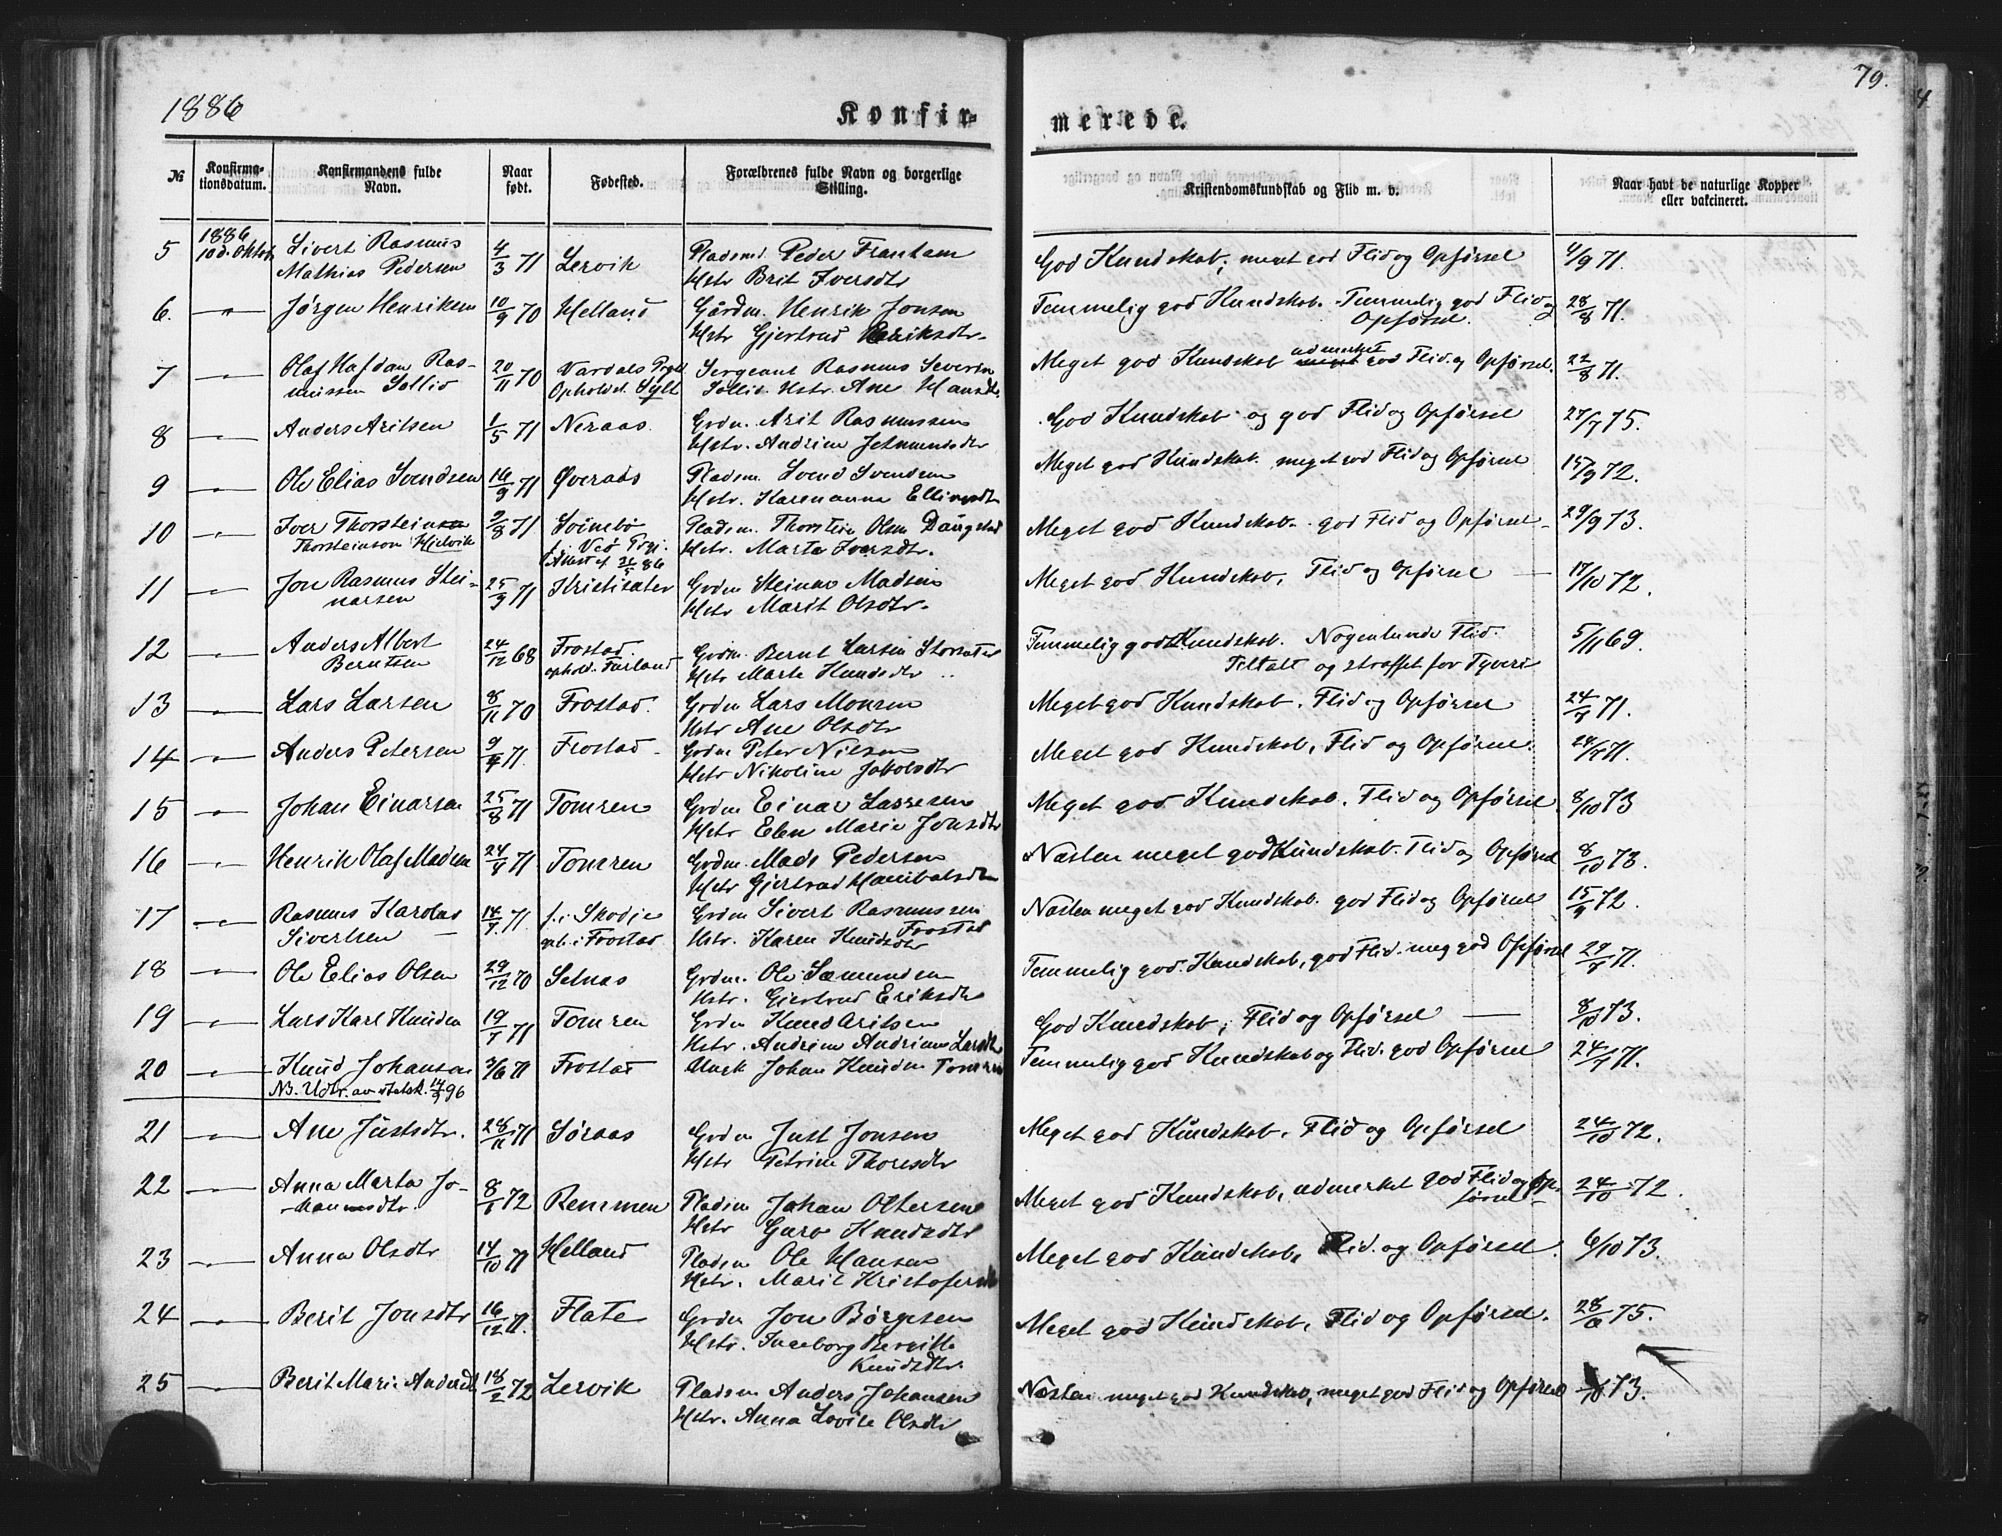 1886
Konfir-
merede.
79.
№
Konfirma-
tionsdatum.
Konfirmandens fulde
Navn.
Naar
født.
Fødested.
Forældrenes fulde Navn og borgerlige
Stilling.
Kristendomskundskab og Flid m. v.
Naar havt de naturlige Kopper
eller vakcineret.
5 1886 10d. Oktob. Sivert Rasmus 4/3 71 Lervik Pladsmd Peder God Kundskab, meget god Flid og Opførsel 4/9 71.
Mathias Pedersen Hstr Brit Iversdtr
6. -"- Jørgen Henriksen 10/9 70 Helland Gårdm. Henrik Jonsen Temmelig god Kundskab. Temmelig god Flid og 28/8 71.
Hstr Gjertrud Eeriksdtr. Opførsel.
7 -"- Olaf Hafdan Ras- 20/11 70 Vardals Prgld Sergeant Rasmus Severin Meget god Kundskab udmerket god Flid og Opførsel. 22/8 71.
mussen Sollid Opholdst. Sylt Sollid. Hstr. Ane Hansdtr.
8 -"- Anders Aritsen 1/5 71 Neraas. Grdm. Arit Rasmussen God Kundskab og god Flid og Opførsel 27/7 75.
Hstr. Andrine Jetmundsdtr
9 -"- Ole Elias Svendsen 16/9 71 Øveraas Pladsm. Svend Svendsen Meget god Kundskab. meget god Flid og Opførsel 15/9 72.
Hstr. Karenanna
10 -"- Iver Thorstein 9/8 71 Svinebø Pladsm. Thorstein Olsen Daugstad Meget god Kundskab. god Flid og Opførsel 29/9 73.
Thorsteinson Hjelvik f. i Veø Prgj. Hstr. Marta Iversdtr.
Attest af 86
11 -"- Jon Rasmus Stei- 25/9 71 Kristisæter Grdm Steinar Madsen Meget god Kundskab, Flid og Opførsel 17/10 72.
narsen Hstr Marit Olsdtr.
12 -"- Anders Albert 24/12 68 Frostad. Grdm. Bernt Larsen Temmelig god Kundskab. Nogenlunde Flid. 5/11 69.
Berntsen ophold. Furland Hstr Marte Knudsdtr Tiltalt og straffet for Tyveri
13 -"- Lars Larsen 8/11 70 Frostad. Grdm Lars Monsen Meget god Kundskab. Flid og Opførsel 24/7 71.
Hstr Ane Olsdtr
14 -"- Anders Petersen 9/4 71. Frostad Grdm Peter Nilsen Meget god Kundskab, Flid og Opførsel. 24/7 71.
Hstr Nikoline Jakobsdtr
15 -"- Johan Einarsen 25/8 71 Tomren Grdm Einar Lassesen Meget god Kundskab. Flid og Opførsel. 8/10 73
Hstr Elen Marie Jonsdtr
16 -"- Henrik Olaf Madsen 24/4 71 Tomren Grdm. Mads Pedersen Næsten meget god Kundskab. Flid og Opførsel 8/10 73.
Hstr Gjertrud Hanibalsdtr
17 -"- Rasmus Karolus 14/7. 71. f. i Skodje Grdm Sivert Rasmussen Næsten meget god Kundskab. god Flid og Opførsel 15/9 72.
Sivertsen oph. i Frostad Hstr. Karen Knudsdtr Frostad
18 -"- Ole Elias Olsen 29/12 70 Selnas Grdm. Ole Sæmundsen Temmelig god Kundskab, god Flid. meg god Opførsel 29/7 71.
Hstr. Gjertrud Eriksdtr
19 -"- Lars Karl Knudsen 19/1 71 Tomren Grdm Knud Aritsen God Kundskab, Flid og Opførsel 8/10 73.
Hstr. Andrine
20 -"- Knud Johansen 3/6 71 Frostad Ungk Johan Knudsen Tomren Temmelig god Kundskab og Flid. god Opførsel 24/7 71.
NB. Udtr. av statsk. 14/9 96
21 -"- Ane Justsdtr. 28/11 71 Søraas Grdm Just Jonsen Meget god Kundskab. Flid og Opførsel 24/10 72.
Hstr Petrine Thoresdtr
22 -"- Anna Marta Jo- 8/1 72 Remmen Pladsm Johan Oltersen Meget god Kundskab, udmerket god Flid og Op- 24/10 72.
hannesdtr. Hstr Guro Knudsdtr førsel
23 -"- Anna Olsdtr 14/10 71 Helland Pladsm Ole Hansen Meget god Kundskab, Flid. og Opførsel. 6/10 73.
Hstr. Marit
24 -"- Berit Jonsdtr 16/12 71. Flate Grdm Jon Børgesen Meget god Kundskab, Flid og Opførsel. 75.
Hstr. Ingeborg Bergitte
Knudsdtr.
25 -"- Berit Marie Andersdt 18/2 72 Lervik Pladsm Anders Johansen Næsten meget god Kundskab, meget god Flid og Opførsel 73.
Hstr. Anna Lovise Olsdtr